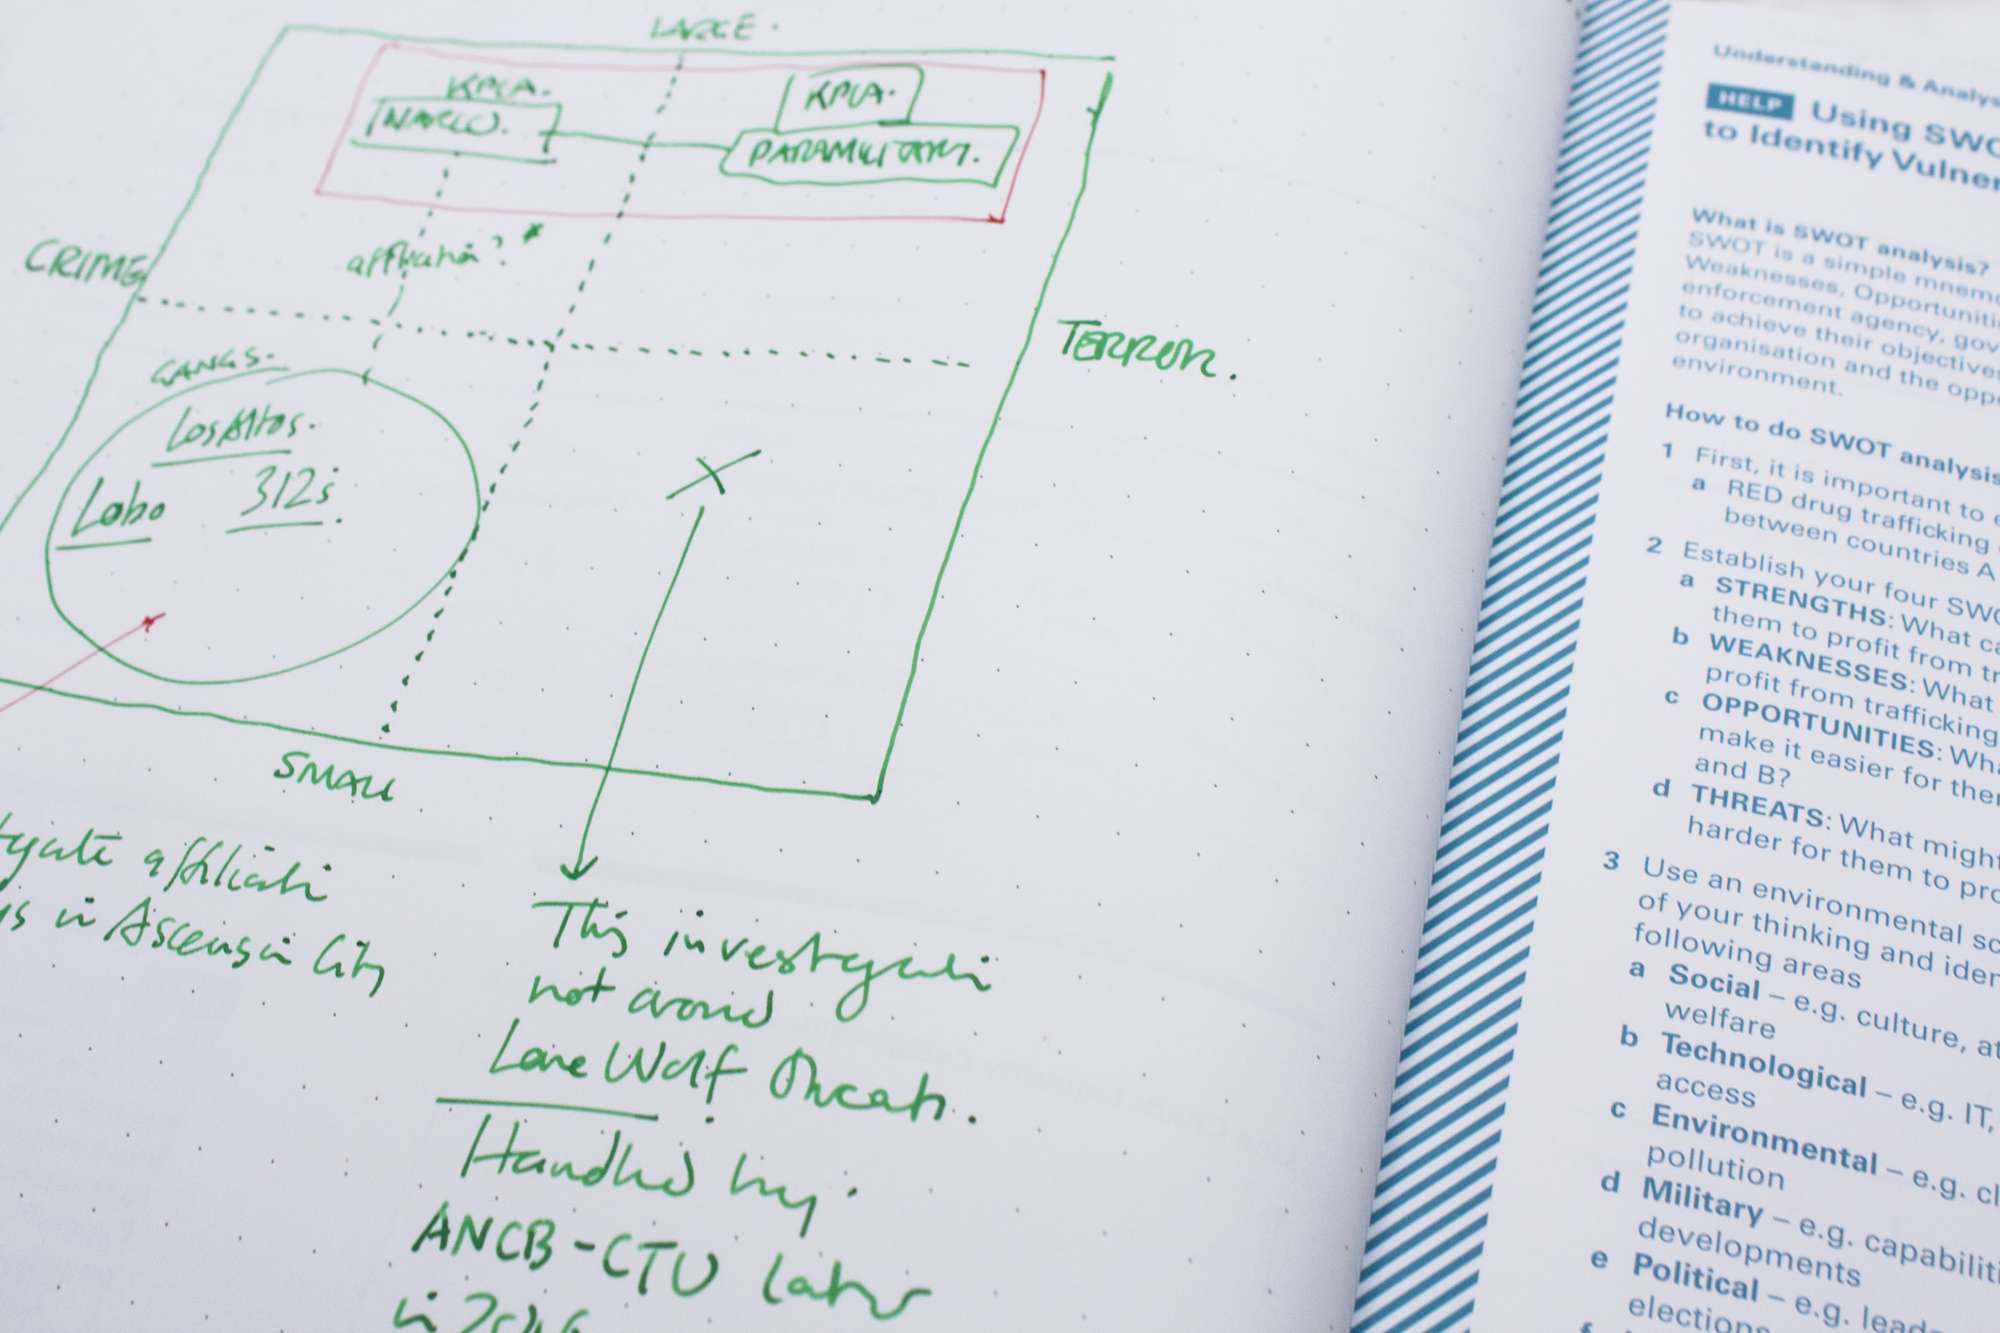 LARGE.
KPLA.
NARCO.
KPLA.
PARAMILITARY.
CRIME
affiliation?
TERROR.
GANGS.
Los Altos.
Lobo 312s.
SMALL
affiliati
in Ascension City
This investigati
not around
Lone Wolf threats.
Handled by.
ANCB-CTU later
in
Understanding & Analys
HELP Using SWO
to Identify Vulner
What is SWOT analysis?
SWOT is a simple mnemo
Weaknesses, Opportuniti
enforcement agency, gov
to achieve their objectives
organisation and the oppo
environment.
How to do SWOT analysis
1 First, it is important to e
a RED drug trafficking
between countries A
2 Establish your four SWO
a STRENGTHS: What ca
them to profit from tr
b WEAKNESSES: What
profit from trafficking
c OPPORTUNITIES: Wha
make it easier for the
and B?
d THREATS: What might
harder for them to pro
3 Use an environmental sc
of your thinking and iden
following areas
a Social – e.g. culture, at
welfare
b Technological – e.g. IT,
access
c Environmental – e.g. cl
pollution
d Military – e.g. capabiliti
developments
e Political – e.g. leade
elections